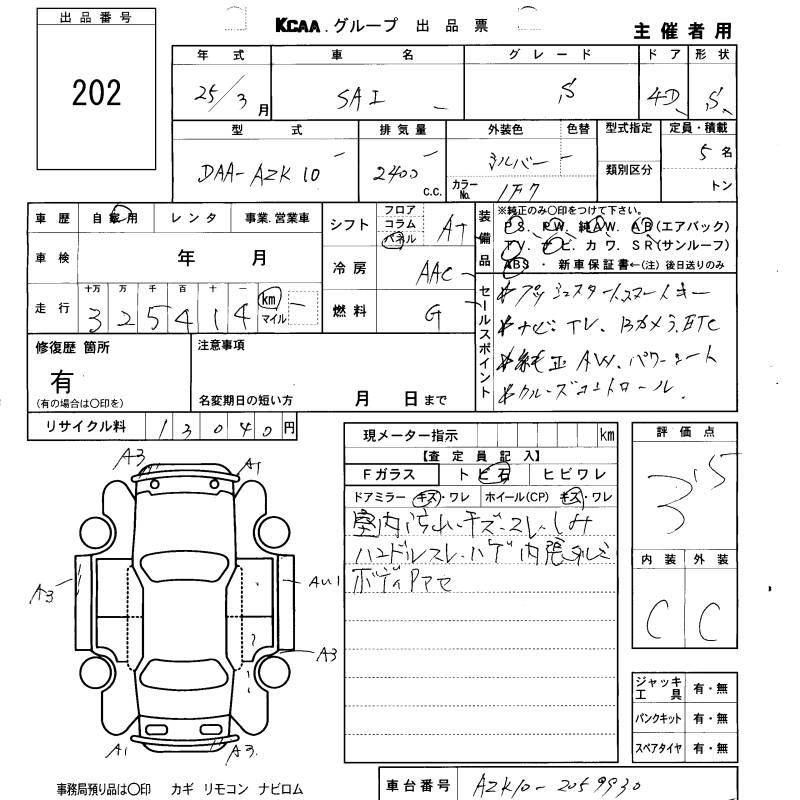 出品番号
202
KCAA.グループ 出品票
主催者用
年式 車名 グレード ドア 形状
25/3月 SAI S 4D S
型式 排気量 外装色 色替 型式指定 定員・積載
DAA-AZK10 2400 c.c. シルバー 類別区分 5名
カラーNo. 1F7 トン
車歴 自家用 レンタ 事業.営業車
車検 年 月
走行 十万 万 千 百 十 一
325414 km マイル
シフト フロア コラム パネル AT
冷房 AAC
燃料 G
装備品
※純正のみ〇印をつけて下さい。
PS. PW. 純AW. AB(エアバック)
TV. ナビ. カワ. SR(サンルーフ)
ABS ・ 新車保証書←(注)後日送りのみ
セールスポイント
*プッシュスタート.スマートキー
*ナビ. TV. Bカメラ. ETC
*純正AW. パワーシート
*クルーズコントロール.
修復歴 箇所
有
(有の場合は〇印を)
注意事項
名変期日の短い方 月 日まで
リサイクル料 13040円
現メーター指示 km
【査定員記入】
Fガラス トビ石 ヒビワレ
ドアミラー キズ・ワレ ホイール(CP) キズ・ワレ
室内汚れ.キズ.スレ.しみ
ハンドルスレ.ハゲ 内張タルミ
ボディPアセ
評価点
3.5
内装 外装
C C
ジャッキ工具 有・無
パンクキット 有・無
スペアタイヤ 有・無
A3 A1
A3 AU1
A3
A1 A3
事務局預り品は〇印 カギ リモコン ナビロム
車台番号 AZK10-2059930